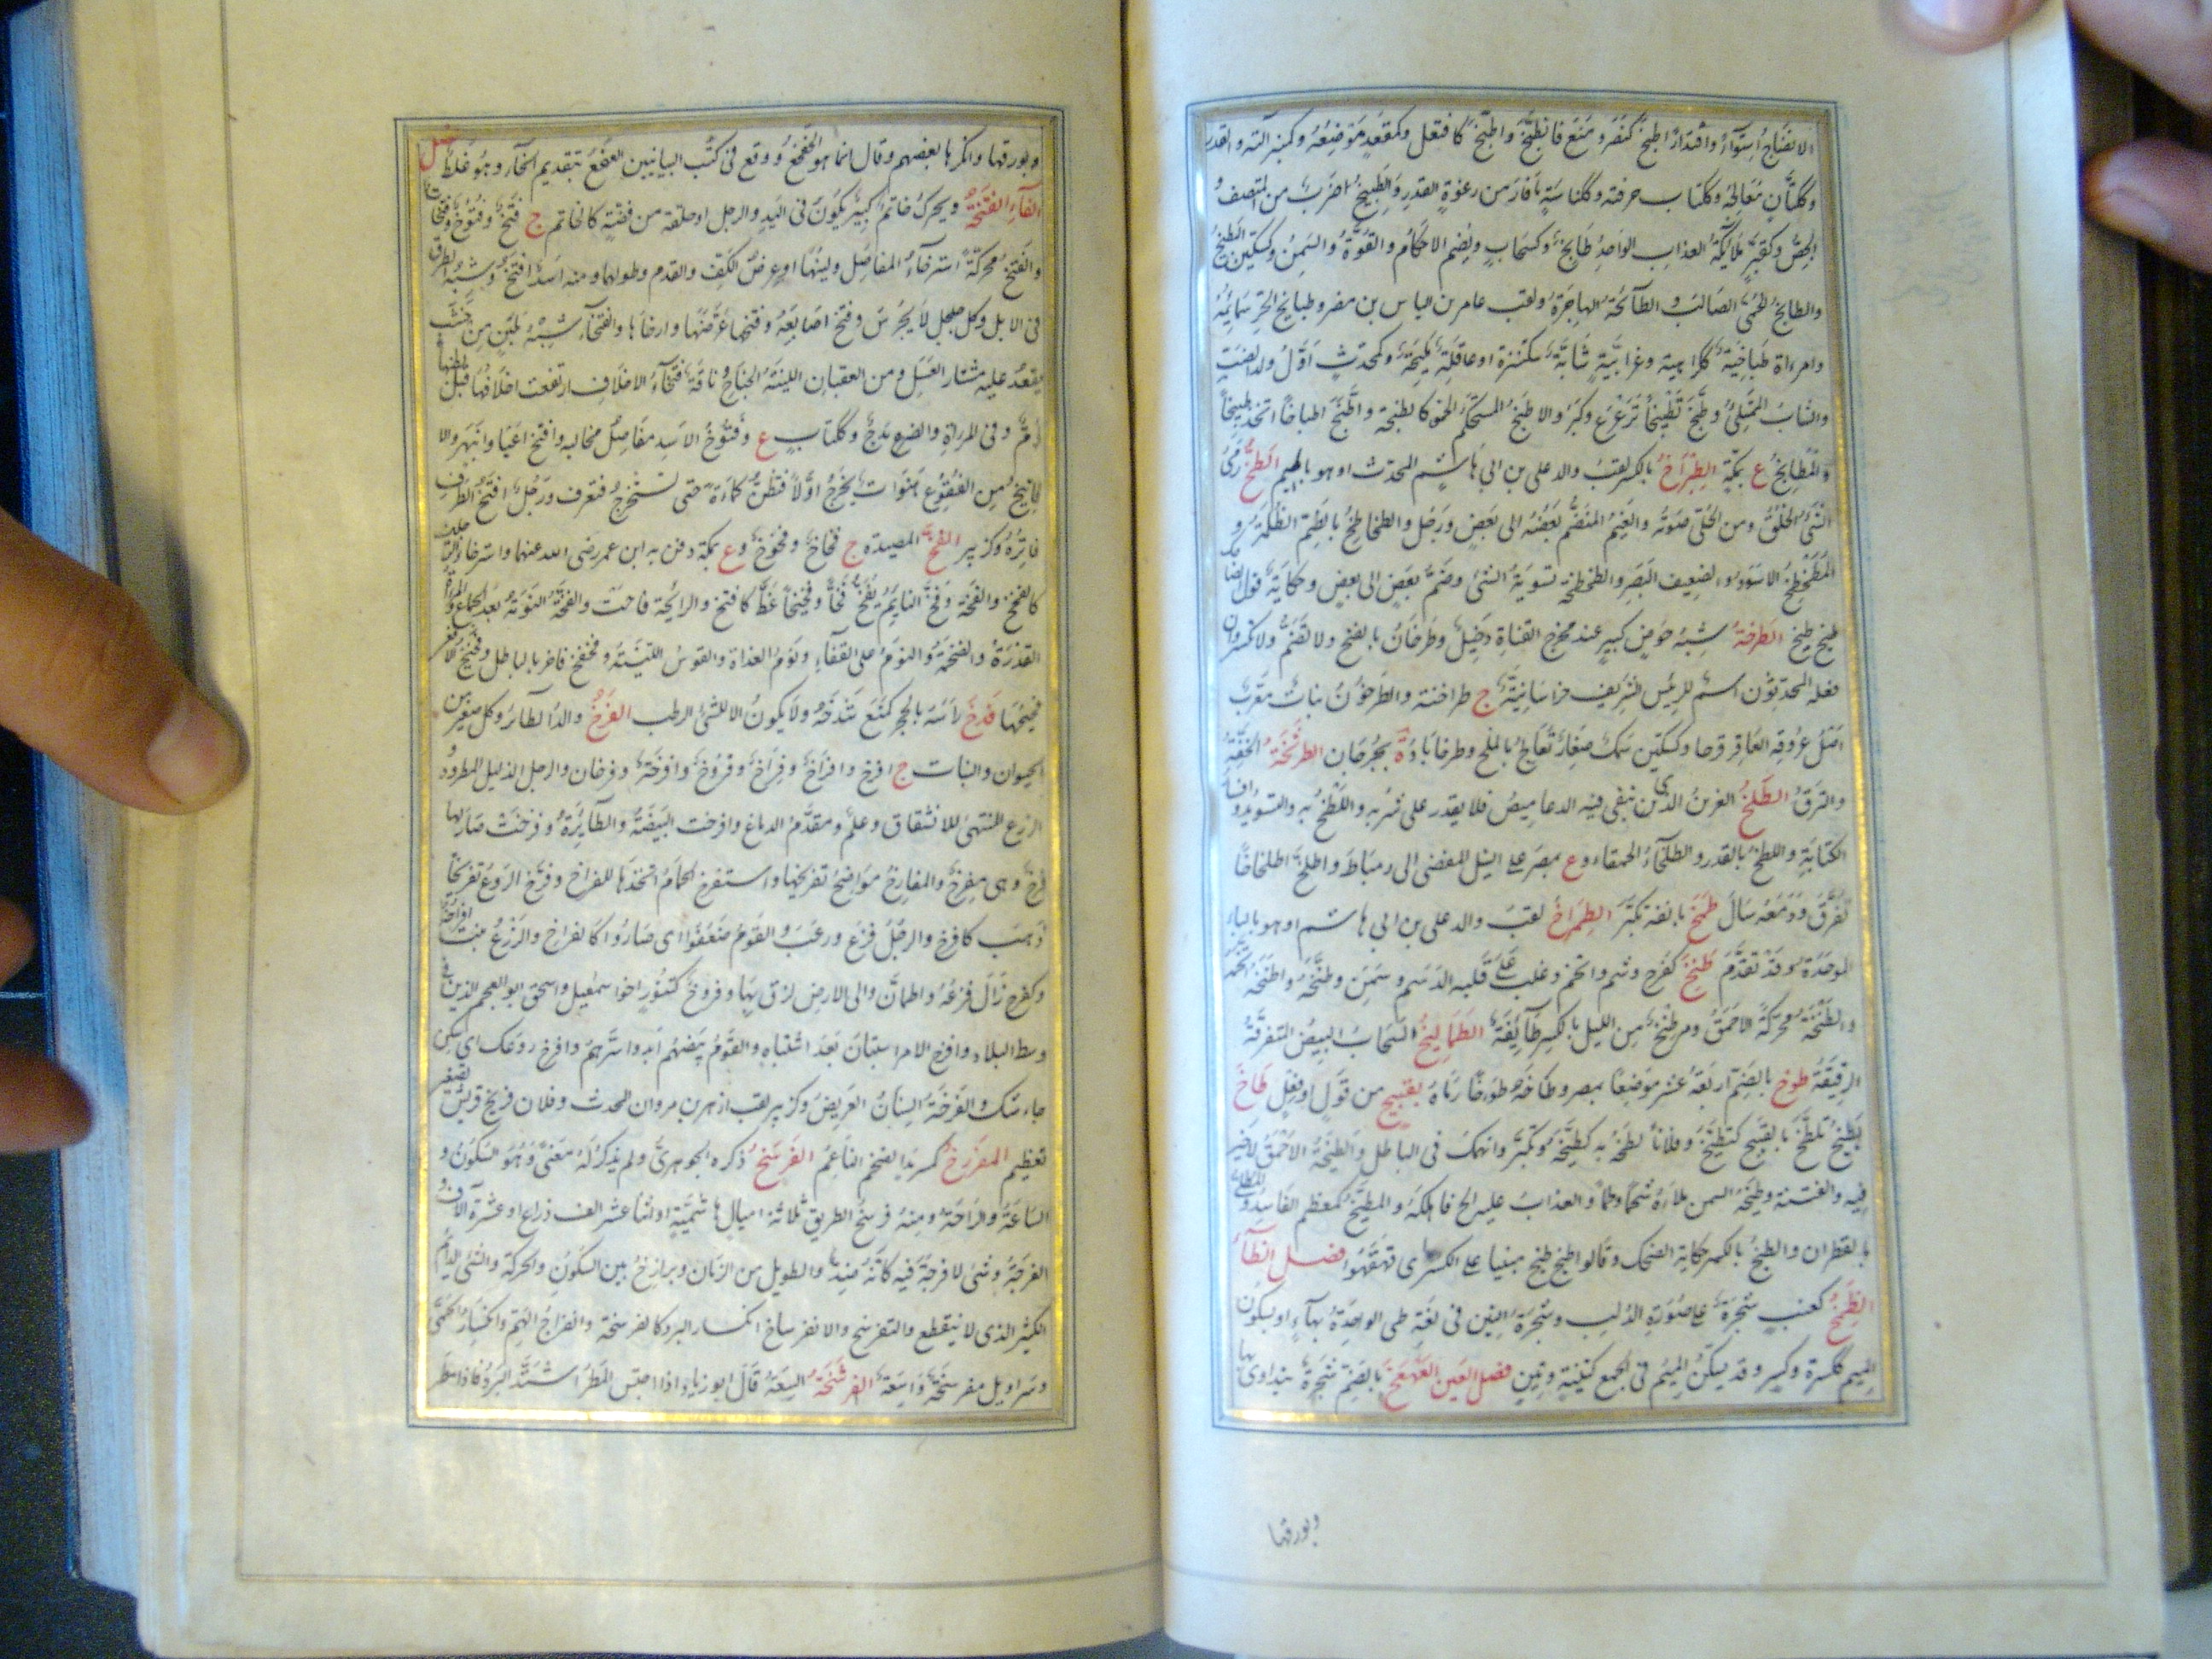 الانضاج اشتواءً واقتدارًا طبخ كنصر ومنع فانطبخ واطبخ كافتعل وكمقعد موضعه وكمنبر آلته والقدر
وكتاب حرفته وككناسة مافار من رغوة القدر والطبيخ ضرب من المنصف و
الجص وكقبر ملائكة العذاب الواحد طابخ وكسحاب ويضم الاحكام والقوة والسمن وكسكين البطيخ
والطابخ الحمى الصالب و الطابخة الهاجرة ولقب عامر بن الياس بن مضر وطبايخ الحر سمايمه
وامراة طباخية ككراهية وغرابية شابة مكتنزة او عاقلة مليحة وكمحدث اول ولد الضب
والشاب الممتلئ وطبخ تطبيخا ترعرع وكبر والاطبخ المستحكم الحمق كالطبخة واطبخ اطباخا اتخذ طبيخا
والمطابخ ع بمكة الطبراخ بالكسر لقب والد علي بن ابي هاشم المحدث او هو بالميم الطخ رمى
الشئ الخلق ومن الحلى صوته والغيم المنضم بعضه الى بعض ورجل والطخاطخ بالضم الظلمة و
المطخطخ الاسود و الضعيف البصر والطخطخة تسوية الشئ وضم بعض الى بعض وحكاية قول الضاحك
طيخ طيخ الطرخة شبه حوض كبير عند مخرج القناة دخيل وطرخان بالفتح ولا تضم ولا تكسر وان
فعله المحدثون اسم للرئيس الشريف خراسانية ج طراخنة والطرخون نبات معرب
اصل عروقه العاقرقرحا وكسكين سمك صغار تعالج بالملح وطرخاباذ ة بجرجان الطرشخة الخفة
والنزق الطلخ الغرين الذى تبقى فيه الدعاميص فلا يقدر على شربه واللطخ به والتسويد وافساد
الكتابة واللطخ بالقدر والطلخاء الحمقاء وع بمصر على النيل المفضى الى دمياط واطلخ اطلخاخا
تفرق ودمعه سال طمخ بانفه تكبر الطمراخ لقب والد علي بن ابي هاشم او هو بالباء
الموحدة وقد تقدم طنخ كفرح وشم واتخم وغلب على قلبه الدسم وسمن وطنخه واطنخه اتخمه
والطنخة محركة الاحمق ومر طنخ من الليل بالكسر طايفة الطماليخ السحاب البيض المتفرقة
الرقيقة طوخ بالضم اربعة عشر موضعا بمصر وطاخه طوخا رماه بقبيح من قول او فعل طاخ
يطيخ تلطخ بالقبيح كتطيخ وفلانا لطخه به كطيخه وتكبر وانهمك فى الباطل والطيخة الاحمق لاخير
فيه والفتنة وطيخه السمن ملاه شحما ولحما والعذاب عليه الح فاهلكه والمطيخ كمعظم الفاسد و
بالقطران والطيخ بالكسر حكاية الضحك وقالوا طيخ طيخ مبنيا على الكسر اى قهقهوا فصل الظآء
الظمخ كعنب شجرة على صورة الدلب وشجرة التين فى لغة طى الواحدة بهاء او بسكون
الميم ككسرة وكسر وقد يسكن الميم فى الجمع كتينة وتين فصل العين العهعخ بالضم شجرة يتداوى بها
وبورقها
وبورقها وانكرها بعضهم وقال انما هو الخعخع ووقع فى كتب البيانيين الهعخع بتقديم الهاء وهو غلط فصل
الفآء الفتخة ويحرك خاتم كبير يكون فى اليد والرجل او حلقة من فضة كالخاتم ج فتخ وفتوخ وفتخات
والفتخ محركة استرخاء المفاصل ولينها او عرض الكف والقدم وطولهما ومنه اسد افتخ وشبه الطرق
فى الابل وكل جلجل لا يجرس وفتخ اصابعه وفتخها عرضها وارخاها والفتخاء شبه ملبن من خشب
يقعد عليه مشتار العسل ومن العقبان اللينة الجناح وناقة فتخاء الاخلاف ارتفعت اخلافها قبل بطنها
ذم وفى المراة والضرع مدح وككتاب ع وفتوخ الاسد مفاصل مخالبه وافتخ اعيا وانبهر والا
فاتيخ من الفقوع هنوات تخرج اولا فتظن كماة حتى تستخرج فتعرف ورجل افتخ الطرف
فاتره وكزبير الفخ المصيدة ج فخاخ وفخوخ وع بمكة دفن به ابن عمر رضى الله عنهما واسترخاء الرجلين
كالفخخ والفخة وفخ النايم يفخ فخا وفخيخا غط كافتخ والرايحة فاحت والفخة النومة بعد الجماع والمراة
القذرة والضخمة والنوم على القفاء ونوم الغداة والقوس اللينة وفخفخ فاخر بالباطل وفخيخ الافعى
فحيحها فدخ راسه بالحجر كمنع شدخه ولا يكون الا للشئ الرطب الفرخ ولد الطائر وكل صغير من
الحيوان والنبات ج افرخ وافراخ وفراخ وفروخ وافرخة وفرخان والرجل الذليل المطرود و
الزرع المتهيئ للانشقاق وعلم ومقدم الدماغ وافرخت البيضة والطايرة وفرخت صار لها
فرخ وهى مفرخ والمفارخ مواضع تفريخها واستفرخ الحمام اتخذها للفراخ وفرخ الروع تفريخا
ذهب كافرخ والرجل فزع ورعب والقوم ضعفوا اى صاروا كالفراخ والزرع نبت افراخه
وكفرح زال فزعه واطمان والى الارض لزق بها وفروخ كتنور اخو اسمعيل واسحق ابو العجم الذين فى
وسط البلاد وافرخ الامر استبان بعد اشتباه والقوم بيضهم ابدوا سرهم وافرخ روعك اى سكن
جاءشك والفرخة السنان العريض وكزبير لقب ازهر بن مروان المحدث وفلان فريخ قريش تصغير
تعظيم المفرزخ كمسرهد الضخم الناعم الفرسخ ذكره الجوهرى ولم يذكر له معنى وهو السكون و
الساعة والراحة ومنه فرسخ الطريق ثلاثة اميال هاشمية او اثنا عشر الف ذراع او عشرة آلاف و
الفرجة وشئ لا فرجة فيه كانه ضد والطويل من الزمان وبرازخ بين السكون والحركة والشئ الدايم
الكثير الذى لا ينقطع والتفرسخ والافرنساخ انكسار البرد كالفرسخة وانفراج الهم وانكسار الحمى
وسراويل مفرسخة واسعة الفرشخة السعة قال ابو زياد اذا احتبس المطر اشتد البرد فاذا مطر